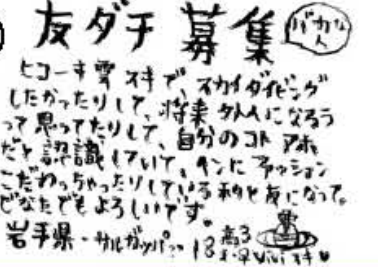 友ダチ募集 バカな人
ヒコーキ雲スキで、スカイダイビング
したかったりして、将来外人になろう
って思ってたりして、自分のコトアホ
だと認識していて、インドファッション
こだわっちゃったりしている私と友になって。
どなたでもよろしいです。
岩手県・サルガッパ 18 高3
ViVi スキ♥